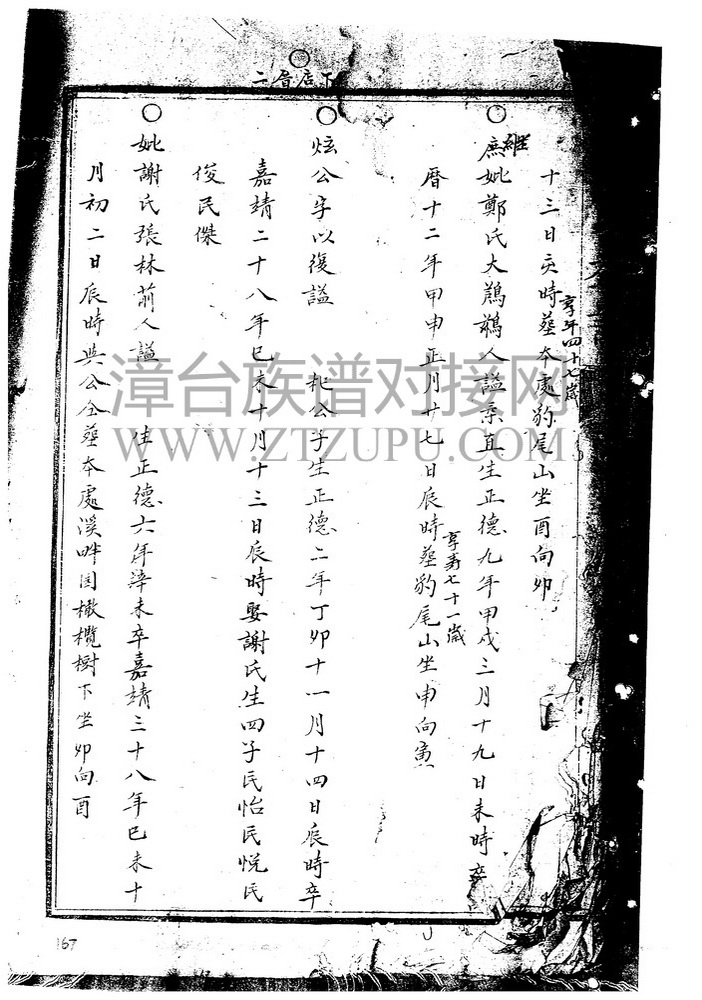 下店㫯二
十三日亥時塟本處豹尾山坐酉向卯
享年四十七歲
庶妣鄭氏大鷓鵝人謚柔直生正德九年甲戍三月十九日未時卒
維
曆十二年甲申正月十七日辰時塟豹尾山坐申向寅
享壽七十一歲
炫公字以復謚 公子生正德二年丁卯十一月十四日辰時卒
嘉靖二十八年巳未十月十三日辰時娶謝氏生四子民怡民悦民
俊民傑
妣謝氏張林前人謚 生正德六年 未卒嘉靖三十八年巳未十
月初二日辰時與公仝塟本處溪畔園橄欖樹下坐卯向酉
漳台族谱对接网
WWW.ZTZUPU.COM
167